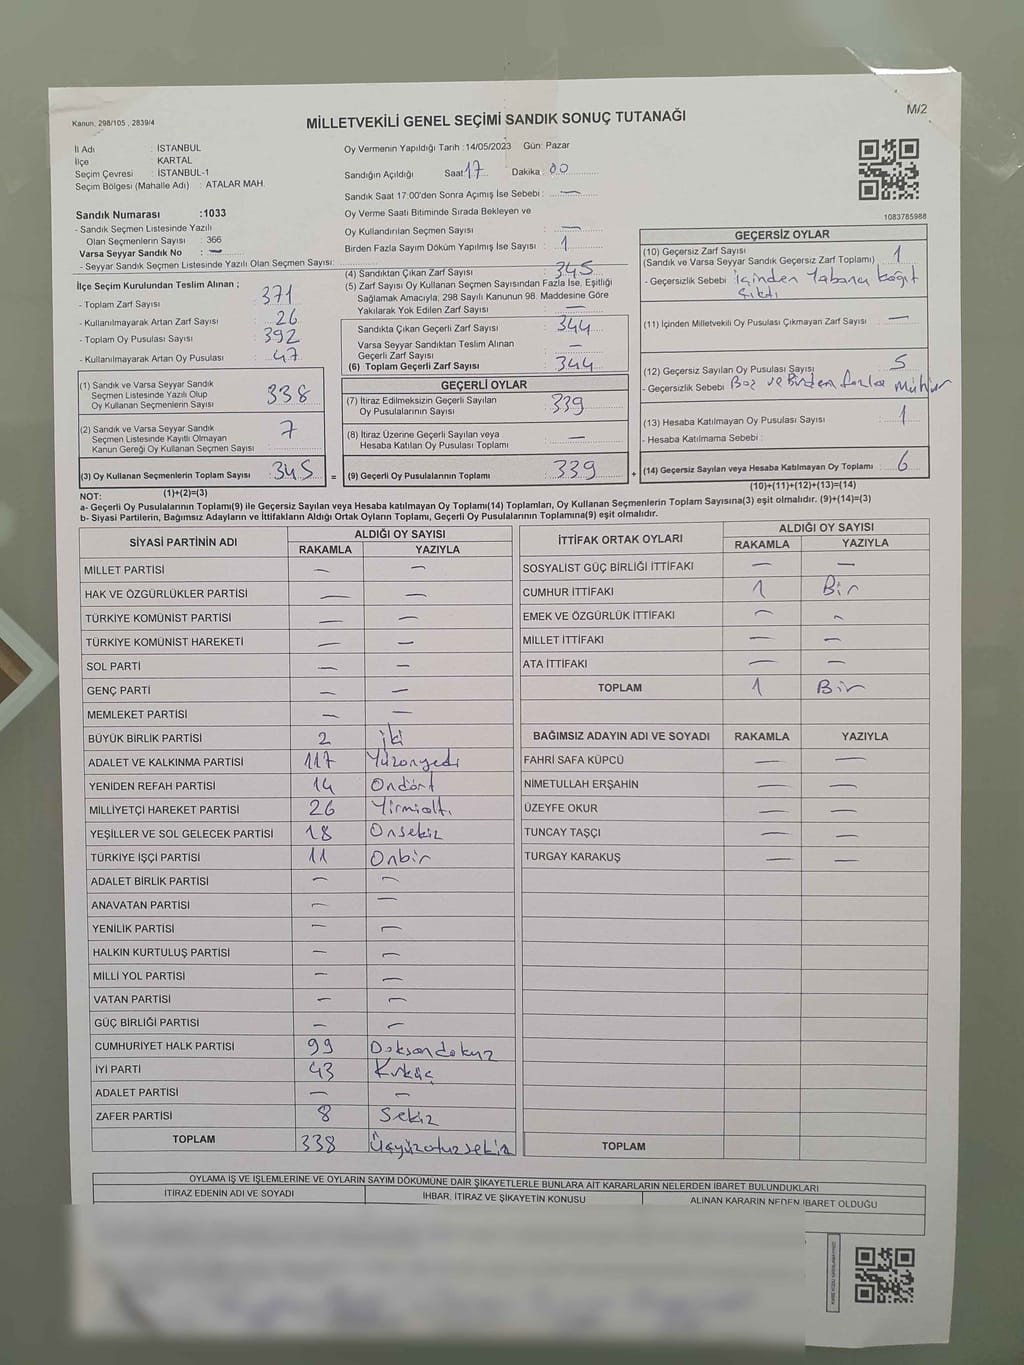 Kanun, 298/105 , 2839/4
M/2
MİLLETVEKİLİ GENEL SEÇİMİ SANDIK SONUÇ TUTANAĞI
İl Adı : İSTANBUL
İlçe : KARTAL
Seçim Çevresi : İSTANBUL-1
Seçim Bölgesi (Mahalle Adı) : ATALAR MAH.
Sandık Numarası :1033
- Sandık Seçmen Listesinde Yazılı
Olan Seçmenlerin Sayısı : 366
Varsa Seyyar Sandık No : —
- Seyyar Sandık Seçmen Listesinde Yazılı Olan Seçmen Sayısı:
Oy Vermenin Yapıldığı Tarih :14/05/2023 Gün: Pazar
Sandığın Açıldığı Saat: 17 Dakika : 00
Sandık Saat 17:00'den Sonra Açımış İse Sebebi : —
Oy Verme Saati Bitiminde Sırada Bekleyen ve
Oy Kullandırılan Seçmen Sayısı : —
Birden Fazla Sayım Döküm Yapılmış İse Sayısı : 1
1083785988
İlçe Seçim Kurulundan Teslim Alınan ;
- Toplam Zarf Sayısı : 371
- Kullanılmayarak Artan Zarf Sayısı : 26
- Toplam Oy Pusulası Sayısı : 392
- Kullanılmayarak Artan Oy Pusulası : 47
(1) Sandık ve Varsa Seyyar Sandık
Seçmen Listesinde Yazılı Olup
Oy Kullanan Seçmenlerin Sayısı : 338
(2) Sandık ve Varsa Seyyar Sandık
Seçmen Listesinde Kayıtlı Olmayan
Kanun Gereği Oy Kullanan Seçmen Sayısı : 7
(3) Oy Kullanan Seçmenlerin Toplam Sayısı : 345
(1)+(2)=(3)
(4) Sandıktan Çıkan Zarf Sayısı : 345
(5) Zarf Sayısı Oy Kullanan Seçmen Sayısından Fazla İse, Eşitliği
Sağlamak Amacıyla, 298 Sayılı Kanunun 98. Maddesine Göre
Yakılarak Yok Edilen Zarf Sayısı : —
Sandıkta Çıkan Geçerli Zarf Sayısı : 344
Varsa Seyyar Sandıktan Teslim Alınan
Geçerli Zarf Sayısı : —
(6) Toplam Geçerli Zarf Sayısı : 344
GEÇERLİ OYLAR
(7) İtiraz Edilmeksizin Geçerli Sayılan
Oy Pusulalarının Sayısı : 339
(8) İtiraz Üzerine Geçerli Sayılan veya
Hesaba Katılan Oy Pusulası Toplamı : —
= (9) Geçerli Oy Pusulalarının Toplamı : 339 +
GEÇERSİZ OYLAR
(10) Geçersiz Zarf Sayısı
(Sandık ve Varsa Seyyar Sandık Geçersiz Zarf Toplamı) : 1
- Geçersizlik Sebebi : içinden Yabancı kağıt
Çıktı
(11) İçinden Milletvekili Oy Pusulası Çıkmayan Zarf Sayısı : —
(12) Geçersiz Sayılan Oy Pusulası Sayısı : 5
- Geçersizlik Sebebi : Boş ve Birden fazla Mühür
(13) Hesaba Katılmayan Oy Pusulası Sayısı : 1
- Hesaba Katılmama Sebebi :
(14) Geçersiz Sayılan veya Hesaba Katılmayan Oy Toplamı : 6
(10)+(11)+(12)+(13)=(14)
NOT:
a- Geçerli Oy Pusulalarının Toplamı(9) ile Geçersiz Sayılan veya Hesaba katılmayan Oy Toplamı(14) Toplamları, Oy Kullanan Seçmenlerin Toplam Sayısına(3) eşit olmalıdır. (9)+(14)=(3)
b- Siyasi Partilerin, Bağımsız Adayların ve İttifakların Aldığı Ortak Oyların Toplamı, Geçerli Oy Pusulalarının Toplamına(9) eşit olmalıdır.
SİYASİ PARTİNİN ADI
ALDIĞI OY SAYISI
RAKAMLA YAZIYLA
MİLLET PARTİSİ — —
HAK VE ÖZGÜRLÜKLER PARTİSİ — —
TÜRKİYE KOMÜNİST PARTİSİ — —
TÜRKİYE KOMÜNİST HAREKETİ — —
SOL PARTİ — —
GENÇ PARTİ — —
MEMLEKET PARTİSİ — —
BÜYÜK BİRLİK PARTİSİ 2 iki
ADALET VE KALKINMA PARTİSİ 117 Yüzonyedi
YENİDEN REFAH PARTİSİ 14 Ondört
MİLLİYETÇİ HAREKET PARTİSİ 26 Yirmialtı
YEŞİLLER VE SOL GELECEK PARTİSİ 18 Onsekiz
TÜRKİYE İŞÇİ PARTİSİ 11 Onbir
ADALET BİRLİK PARTİSİ — —
ANAVATAN PARTİSİ — —
YENİLİK PARTİSİ — —
HALKIN KURTULUŞ PARTİSİ — —
MİLLİ YOL PARTİSİ — —
VATAN PARTİSİ — —
GÜÇ BİRLİĞİ PARTİSİ — —
CUMHURİYET HALK PARTİSİ 99 Doksandokuz
İYİ PARTİ 43 Kırküç
ADALET PARTİSİ — —
ZAFER PARTİSİ 8 Sekiz
TOPLAM 338 Üçyüzotuzsekiz
İTTİFAK ORTAK OYLARI
ALDIĞI OY SAYISI
RAKAMLA YAZIYLA
SOSYALİST GÜÇ BİRLİĞİ İTTİFAKI — —
CUMHUR İTTİFAKI 1 Bir
EMEK VE ÖZGÜRLÜK İTTİFAKI — —
MİLLET İTTİFAKI — —
ATA İTTİFAKI — —
TOPLAM 1 Bir
BAĞIMSIZ ADAYIN ADI VE SOYADI RAKAMLA YAZIYLA
FAHRİ SAFA KÜPCÜ — —
NİMETULLAH ERŞAHİN — —
ÜZEYFE OKUR — —
TUNCAY TAŞÇI — —
TURGAY KARAKUŞ — —
TOPLAM
OYLAMA İŞ VE İŞLEMLERİNE VE OYLARIN SAYIM DÖKÜMÜNE DAİR ŞİKAYETLERLE BUNLARA AİT KARARLARIN NELERDEN İBARET BULUNDUKLARI
İTİRAZ EDENİN ADI VE SOYADI İHBAR, İTİRAZ VE ŞİKAYETİN KONUSU ALINAN KARARIN NEDEN İBARET OLDUĞU